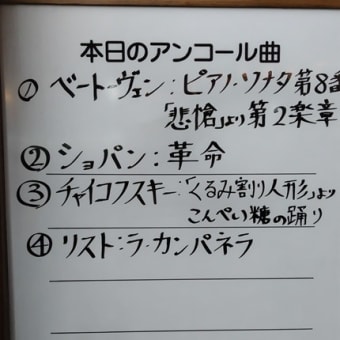 本日のアンコール曲
① ベートーヴェン:ピアノ・ソナタ第8番
「悲愴」より第2楽章
② ショパン:革命
③ チャイコフスキー:「くるみ割り人形」より
こんぺい糖の踊り
④ リスト:ラ・カンパネラ